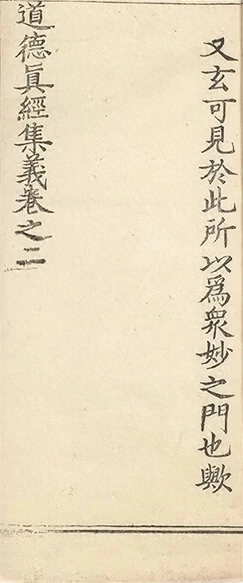 又玄可見於此所以為衆妙之門也歟
道德眞經集義卷之二